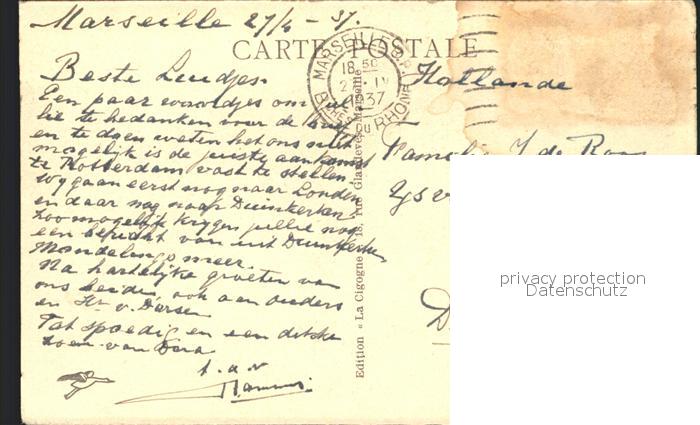 Marseille 27/4 - 37.
CARTE POSTALE
MARSEILLE GARE
18 50
2 IV
1937
BCHES DU RHONE
Beste Luidjes
Een paar woordjes om jul
lie te bedanken voor de brief
en te doen weten het ons niet
mogelijk is de juiste aankomst
te Rotterdam vast te stellen
Wij gaan eerst nog naar Londen
en daar nog naar Duinkerken.
Zoo mogelijk krijgen jullie nog
een bericht van uit Duinkerken
Mondelings meer.
Na hartelijke groeten van
ons beiden, ook aan ouders
en Hr v.
Tot spoedig en een
zoen van Dora
t. a. v
Hollande
Familie J de
D
Edition « La Cigogne » 18, rue Glandevès - Marseille
privacy protection
Datenschutz